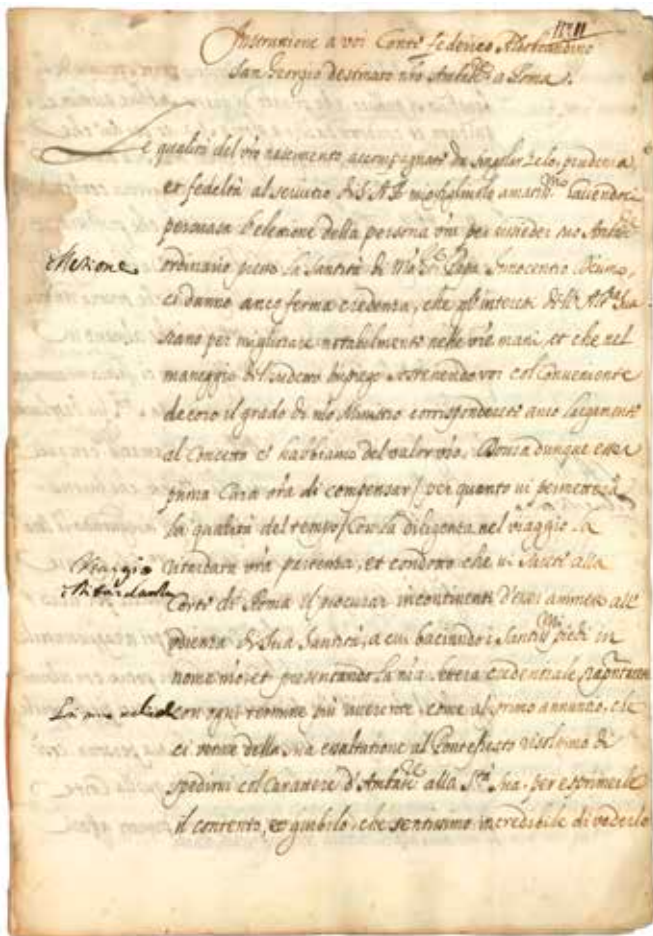 Instruzione a voi Conte Federico Aldobrandino
San Georgio destinato nro Ambre a Roma.
Le qualità del vro nascimento accompagnate da singolar zelo, prudenza
et fedeltà al servitio di S. A. R. mio figliuolo amatmo havendoci
persuasa l'elezione della persona vra per risieder suo Ambre
Elezione
ordinario presso la Santità di Papa Innocentio
ci danno anco ferma credenza, che gl'interessi dell' A.
siano per migliorare notabilmente nelle vre mani, et che nel
maneggio di sudetto Impiego sostenendo voi col Conveniente
decoro il grado di nro Ministro corrisponderete anco largamente
al Concetto ch' habbiamo del valor vro. Dourà dunque esser
prima Cura vra di compensar (per quanto vi permetterà
la qualità del tempo) con la diligenza nel viaggio la
Viaggio
ritardata vra partenza, et condotto che vi siate alla
Corte di Roma il procurar incontinenti d'esser ammesso all'
udienza di Sua Santità, a cui baciando i Santmi piedi in
nome nro, et presentando la nra lettera credenziale,
con ogni termine più riverente, come al primo annunzo, che
ci venne della sua esaltatione al Ponteficato risolsimo di
spedirvi col Carattere d'Ambre alla Stà Sua, per esprimerle
il contento, et giubilo, che sentissimo incredibile di vederlo